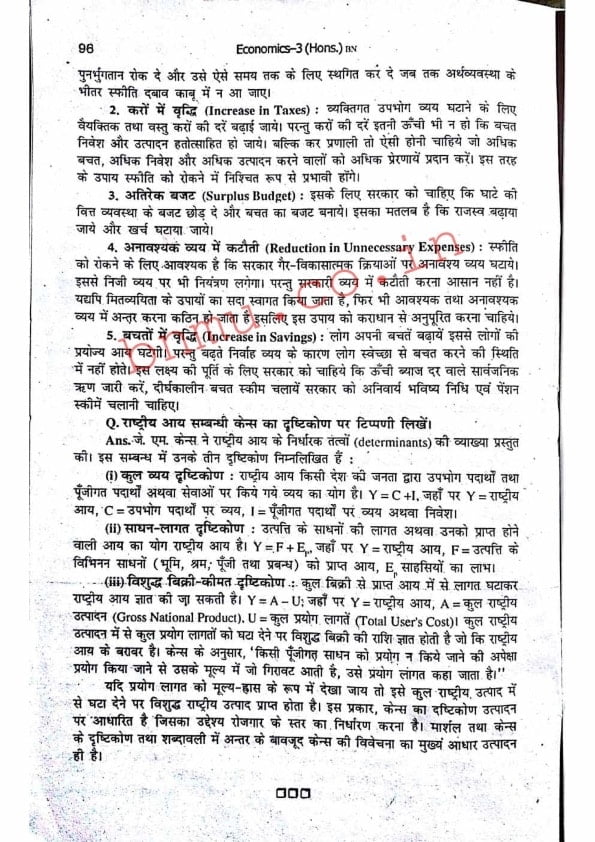 96
Economics–3 (Hons.) BN
पुनर्भुगतान रोक दे और उसे ऐसे समय तक के लिए स्थगित कर दे जब तक अर्थव्यवस्था के
भीतर स्फीति दबाव काबू में न आ जाए।
2. करों में वृद्धि (Increase in Taxes) : व्यक्तिगत उपभोग व्यय घटाने के लिए
वैयक्तिक तथा वस्तु करों की दरें बढ़ाई जाये। परन्तु करों की दरें इतनी ऊँची भी न हो कि बचत
निवेश और उत्पादन हतोत्साहित हो जाये। बल्कि कर प्रणाली तो ऐसी होनी चाहिये जो अधिक
बचत, अधिक निवेश और अधिक उत्पादन करने वालों को अधिक प्रेरणायें प्रदान करें। इस तरह
के उपाय स्फीति को रोकने में निश्चित रूप से प्रभावी होंगे।
3. अतिरेक बजट (Surplus Budget) : इसके लिए सरकार को चाहिए कि घाटे की
वित्त व्यवस्था के बजट छोड़ दे और बचत का बजट बनाये। इसका मतलब है कि राजस्व बढ़ाया
जाये और खर्च घटाया जाये।
4. अनावश्यक व्यय में कटौती (Reduction in Unnecessary Expenses) : स्फीति
को रोकने के लिए आवश्यक है कि सरकार गैर-विकासात्मक क्रियाओं पर अनावश्य व्यय घटाये।
इससे निजी व्यय पर भी नियंत्रण लगेगा। परन्तु सरकारी व्यय में कटौती करना आसान नहीं है।
यद्यपि मितव्ययिता के उपायों का सदा स्वागत किया जाता है, फिर भी आवश्यक तथा अनावश्यक
व्यय में अन्तर करना कठिन हो जाता है इसलिए इस उपाय को कराधान से अनुपूरित करना चाहिये।
5. बचतों में वृद्धि (Increase in Savings) : लोग अपनी बचतें बढ़ायें इससे लोगों की
प्रयोज्य आय घटेगी। परन्तु बढ़ते निर्वाह व्यय के कारण लोग स्वेच्छा से बचत करने की स्थिति
में नहीं होते। इस लक्ष्य की पूर्ति के लिए सरकार को चाहिये कि ऊँची ब्याज दर वाले सार्वजनिक
ऋण जारी करें, दीर्घकालीन बचत स्कीम चलायें सरकार को अनिवार्य भविष्य निधि एवं पेंशन
स्कीमें चलानी चाहिए।
Q. राष्ट्रीय आय सम्बन्धी केन्स का दृष्टिकोण पर टिप्पणी लिखें।
Ans. जे. एम. केन्स ने राष्ट्रीय आय के निर्धारक तत्वों (determinants) की व्याख्या प्रस्तुत
की। इस सम्बन्ध में उनके तीन दृष्टिकोण निम्नलिखित हैं :
(i) कुल व्यय दृष्टिकोण : राष्ट्रीय आय किसी देश की जनता द्वारा उपभोग पदार्थों तथा
पूँजीगत पदार्थों अथवा सेवाओं पर किये गये व्यय का योग है। Y = C+I, जहाँ पर Y = राष्ट्रीय
आय, C = उपभोग पदार्थों पर व्यय, I = पूँजीगत पदार्थों पर व्यय अथवा निवेश।
(ii) साधन-लागत दृष्टिकोण : उत्पत्ति के साधनों की लागत अथवा उनको प्राप्त होने
वाली आय का योग राष्ट्रीय आय है। Y = F + Ep, जहाँ पर Y = राष्ट्रीय आय, F = उत्पत्ति के
विभिनन साधनों (भूमि, श्रम, पूँजी तथा प्रबन्ध) को प्राप्त आय, Ep साहसियों का लाभ।
(iii) विशुद्ध बिक्री-कीमत दृष्टिकोण : कुल बिक्री से प्राप्त आय में से लागत घटाकर
राष्ट्रीय आय ज्ञात की जा सकती है। Y = A – U; जहाँ पर Y = राष्ट्रीय आय, A = कुल राष्ट्रीय
उत्पादन (Gross National Product). U = कुल प्रयोग लागतें (Total User's Cost)। कुल राष्ट्रीय
उत्पादन में से कुल प्रयोग लागतों को घटा देने पर विशुद्ध बिक्री की राशि ज्ञात होती है जो कि राष्ट्रीय
आय के बराबर है। केन्स के अनुसार, 'किसी पूँजीगत साधन को प्रयोग न किये जाने की अपेक्षा
प्रयोग किया जाने से उसके मूल्य में जो गिरावट आती है, उसे प्रयोग लागत कहा जाता है।''
यदि प्रयोग लागत को मूल्य-ह्रास के रूप में देखा जाय तो इसे कुल राष्ट्रीय उत्पाद में
से घटा देने पर विशुद्ध राष्ट्रीय उत्पाद प्राप्त होता है। इस प्रकार, केन्स का दृष्टिकोण उत्पादन
पर आधारित है जिसका उद्देश्य रोजगार के स्तर का निर्धारण करना है। मार्शल तथा केन्स
के दृष्टिकोण तथा शब्दावली में अन्तर के बावजूद केन्स की विवेचना का मुख्य आधार उत्पादन
ही है।
bnmu.co.in